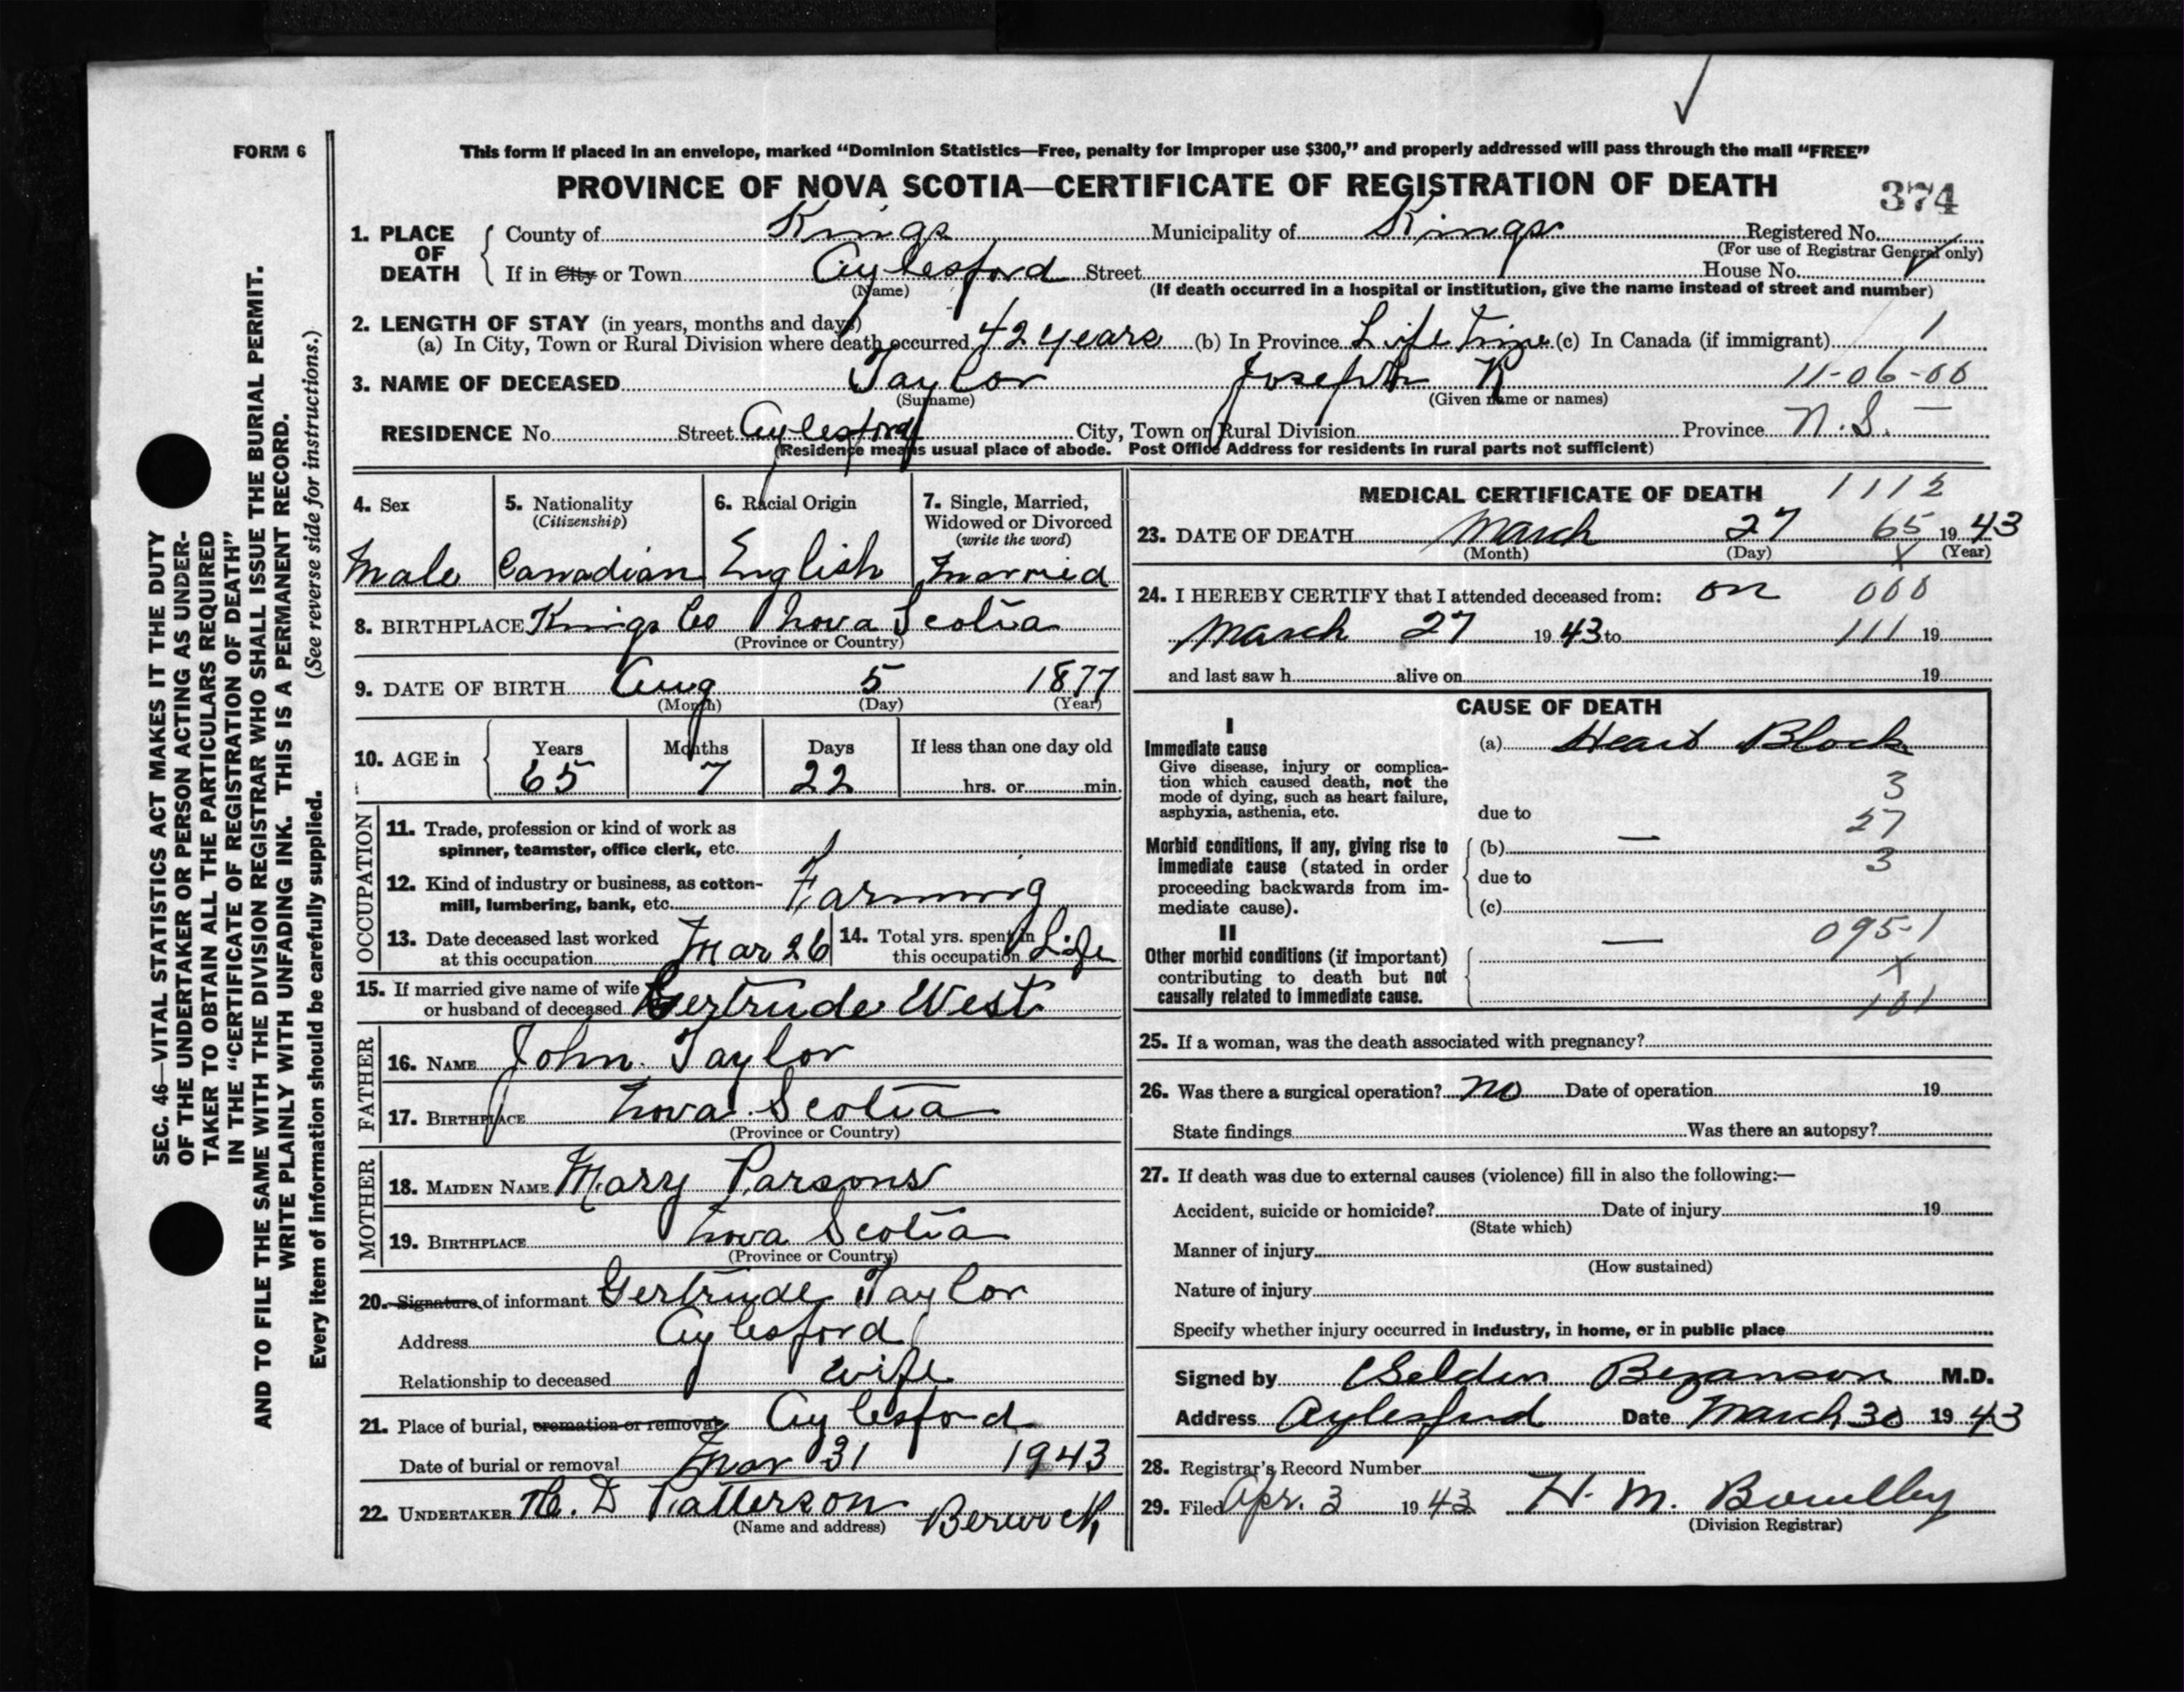 FORM 6
This form if placed in an envelope, marked “Dominion Statistics—Free, penalty for improper use $300,” and properly addressed will pass through the mail “FREE”
PROVINCE OF NOVA SCOTIA—CERTIFICATE OF REGISTRATION OF DEATH
374
1. PLACE OF DEATH { County of Kings Municipality of Kings Registered No.
(For use of Registrar General only)
If in City or Town Aylesford Street House No.
(Name) (If death occurred in a hospital or institution, give the name instead of street and number)
2. LENGTH OF STAY (in years, months and days)
(a) In City, Town or Rural Division where death occurred 42 years (b) In Province Life Time (c) In Canada (if immigrant) 1
3. NAME OF DECEASED Taylor Joseph R 11-06-00
(Surname) (Given name or names)
RESIDENCE No. Street Aylesford City, Town or Rural Division Province N.S. —
(Residence means usual place of abode. Post Office Address for residents in rural parts not sufficient)
4. Sex
Male
5. Nationality
(Citizenship)
Canadian
6. Racial Origin
English
7. Single, Married,
Widowed or Divorced
(write the word)
Married
8. BIRTHPLACE Kings Co Nova Scotia
(Province or Country)
9. DATE OF BIRTH Aug 5 1877
(Month) (Day) (Year)
10. AGE in { Years Months Days If less than one day old
65 7 22 hrs. or min.
OCCUPATION
11. Trade, profession or kind of work as
spinner, teamster, office clerk, etc.
12. Kind of industry or business, as cotton-
mill, lumbering, bank, etc. Farming
13. Date deceased last worked
at this occupation Mar 26
14. Total yrs. spent in
this occupation Life
15. If married give name of wife
or husband of deceased Gertrude West
FATHER
16. NAME John Taylor
17. BIRTHPLACE Nova Scotia
(Province or Country)
MOTHER
18. MAIDEN NAME Mary Parsons
19. BIRTHPLACE Nova Scotia
(Province or Country)
20. Signature of informant Gertrude Taylor
Address Aylesford
Relationship to deceased wife
21. Place of burial, cremation or removal Aylesford
Date of burial or removal Mar 31 1943
22. UNDERTAKER D Patterson Berwick
(Name and address)
MEDICAL CERTIFICATE OF DEATH 1112
23. DATE OF DEATH March 27 65 1943
(Month) (Day) X (Year)
24. I HEREBY CERTIFY that I attended deceased from: on 000
March 27 1943 to 111 19
and last saw h alive on 19
CAUSE OF DEATH
I
Immediate cause
Give disease, injury or complica-
tion which caused death, not the
mode of dying, such as heart failure,
asphyxia, asthenia, etc.
(a) Heart Block
3
due to
27
Morbid conditions, if any, giving rise to
immediate cause (stated in order
proceeding backwards from im-
mediate cause).
(b) —
3
due to
(c)
II
Other morbid conditions (if important)
contributing to death but not
causally related to immediate cause.
—
095-1
X
101
25. If a woman, was the death associated with pregnancy?
26. Was there a surgical operation? No Date of operation 19
State findings Was there an autopsy?
27. If death was due to external causes (violence) fill in also the following:—
Accident, suicide or homicide? Date of injury 19
(State which)
Manner of injury
(How sustained)
Nature of injury
Specify whether injury occurred in industry, in home, or in public place
Signed by Selden Bezanson M.D.
Address Aylesford Date March 30 1943
28. Registrar's Record Number
29. Filed Apr. 3 1943 H. M.
(Division Registrar)
SEC. 46—VITAL STATISTICS ACT MAKES IT THE DUTY
OF THE UNDERTAKER OR PERSON ACTING AS UNDER-
TAKER TO OBTAIN ALL THE PARTICULARS REQUIRED
IN THE “CERTIFICATE OF REGISTRATION OF DEATH”
AND TO FILE THE SAME WITH THE DIVISION REGISTRAR WHO SHALL ISSUE THE BURIAL PERMIT.
WRITE PLAINLY WITH UNFADING INK. THIS IS A PERMANENT RECORD.
Every item of information should be carefully supplied. (See reverse side for instructions.)